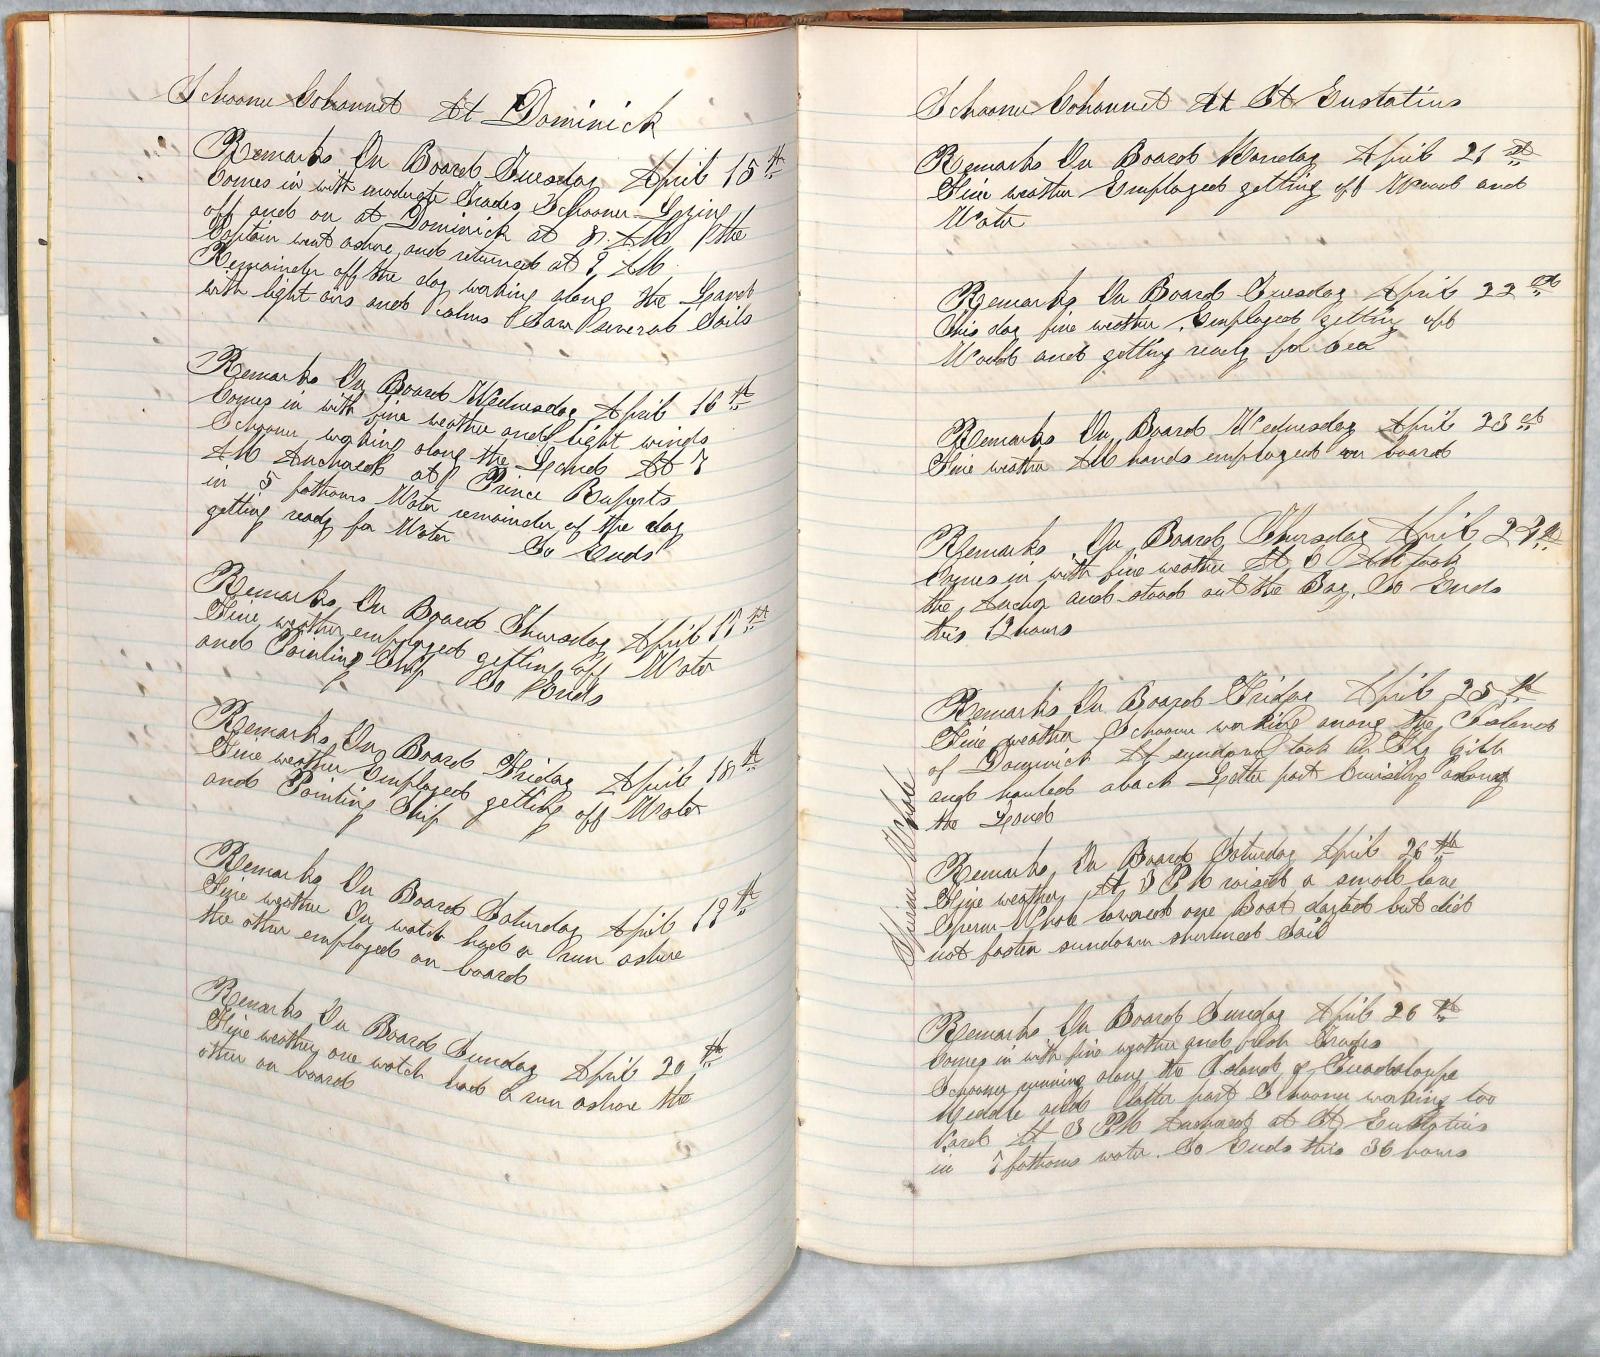 Schooner Cohannet At Dominick
Remarks On Board Tuesday April 15th
Comes in with moderate Trades Schooner Lying
off and on at Dominick at 8. AM the
Captain went ashore and returned at 9 AM
Remainder off the day working along the Land
with light airs and Calms Saw several Sails
Remarks On Board Wednesday April 16th
Comes in with fine weather and light winds
Schooner working along the Land At 7
AM Anchored at Prince Ruperts
in 5 fathoms Water remainder of the day
getting ready for Water So Ends
Remarks On Board Thursday April 17th
Fine weather employed getting off Water
and Painting Ship So Ends
Remarks On Board Friday April 18th
Fine weather Employed getting off Water
and Painting Ship
Remarks On Board Saturday April 19th
Fine weather On watch had a run ashore
the other employed on board
Remarks On Board Sunday April 20th
Fine weather one watch had a run ashore the
other on board
Schooner Cohannet At St Eustatius
Remarks On Board Monday April 21st
Fine weather Employed getting off Wood and
Water
Remarks On Board Tuesday April 22ed
This day fine weather Employed getting off
Wood and getting ready for Sea
Remarks On Board Wednesday April 23ed
Fine weather All hands employed on board
Remarks On Board Thursday April 24th
Comes in with fine weather At 6 PM took
the Anchor and stood out the Bay. So Ends
this 12 hours
Remarks On Board Friday April 25th
Fine weather Schooner working among the Islands
of Dominick At sundown took in Fly Gibb
and hauled aback Latter part Cruising along
the Land
Sperm Whale
Remarks On Board Saturday April 26th
Fine weather At 3 PM raised a small lone
Sperm Whale lowered one Boat darted but did
not fasten sundown shortened Sail
Remarks On Board Sunday April 26th
Comes in with fine weather and fresh Trades
Schooner running along the Island of Guadaloupe
Middle and latter part Schooner working too
ward At 3 PM Anchored at St Eustatius
in 7 fathoms water. So Ends this 36 hours